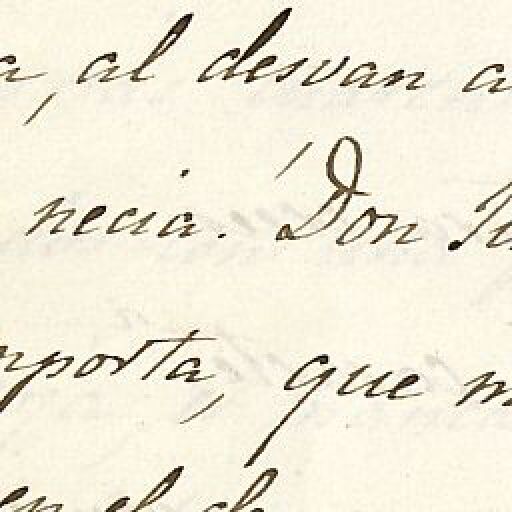 a, al desvan a
necia. Don Ju
mporta, que m
en el